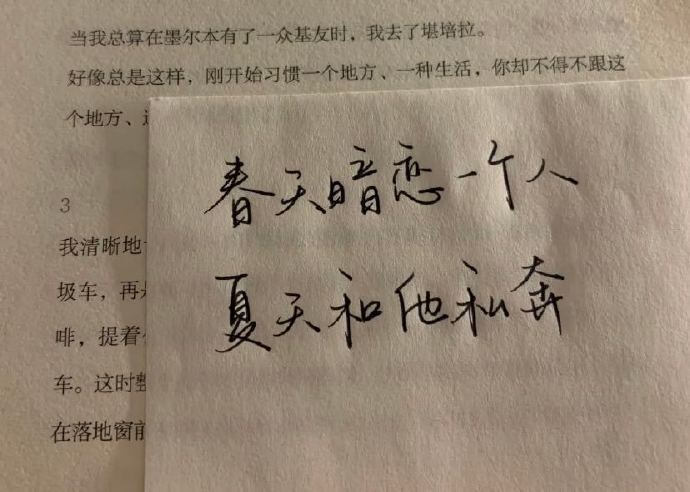 当我总算在墨尔本有了一众基友时，我去了堪培拉。
好像总是这样，刚开始习惯一个地方、一种生活，你却不得不跟这
个地方、
春天暗恋一个人
夏天和他私奔
3
我清晰地
圾车，再
啡，提着
车。这时整
在落地窗前